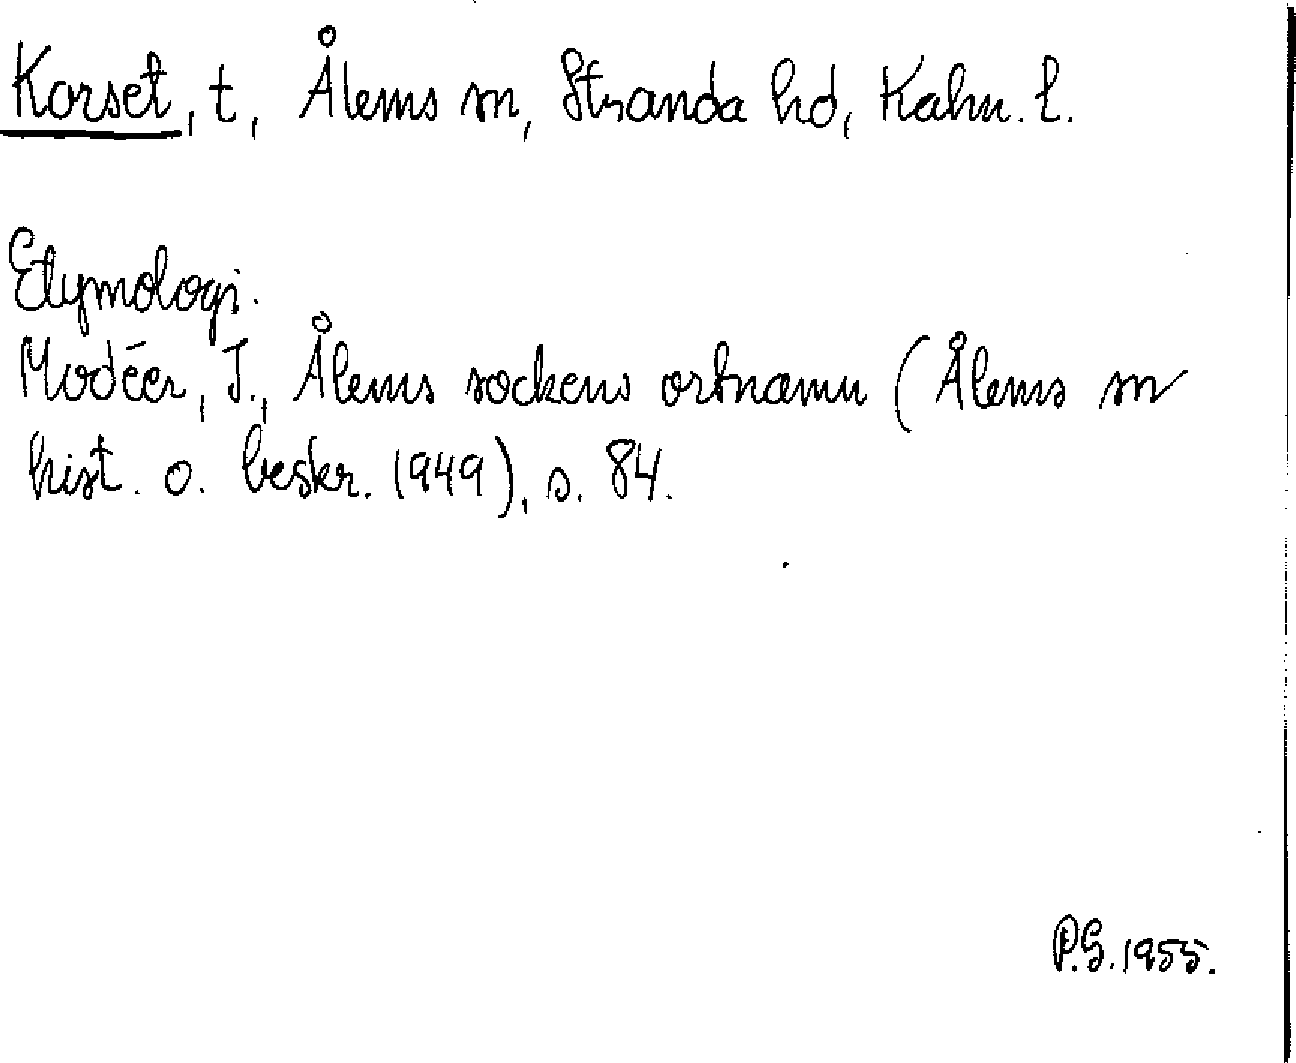 Korset, t, Ålems sn, Stranda hd, Kalm. l.
Etymologi.
Modéer, I., Ålems sockens ortnamn (Ålems sn
hist. o. beskr. 1949), s. 84.
P.G. 1955.